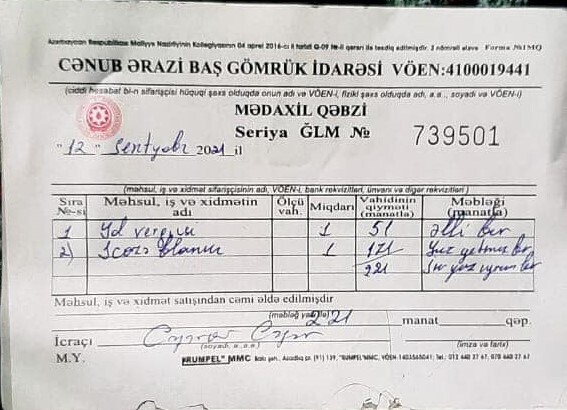 Azərbaycan Respublikası Maliyyə Nazirliyinin Kollegiyasının 04 aprel 2016-cı il tarixli Q-09 №-li qərarı ilə təsdiq edilmişdir. 2 nömrəli əlavə Forma №1MQ
CƏNUB ƏRAZİ BAŞ GÖMRÜK İDARƏSİ VÖEN:4100019441
(ciddi hesabat bl-n sifarişçisi hüquqi şəxs olduqda onun adı və VÖEN-i, fiziki şəxs olduqda, a.a., soyadı və VÖEN-i)
MƏDAXİL QƏBZİ
Seriya ĞLM № 739501
"12" sentyabr 2021 il
(məhsul, iş və xidmət sifarişçisinin adı, VÖEN-i, bank rekvizitləri, ünvanı və digər rekvizitləri)
Sıra №-si Məhsul, iş və xidmətin adı Ölçü vah. Miqdarı Vahidinin qiyməti (manatla) Məbləği (manatla)
1 Yol vergisi 1 51 Əlli bir
2) İcazə blankı 1 171 Yüz yetmiş bir
221
Məhsul, iş və xidmət satışından cəmi əldə edilmişdir
(məbləğ yazı ilə) 221 manat qəp.
İcraçı
(soyadı, a.a.a.) (imza və tarix)
M.Y. "RUMPEL" MMC Bakı şəh., Azadlıq pr. (91) 139, "RUMPEL"MMC, VÖEN-1403565041; Tel.: 012 440 37 61, 070 440 37 61